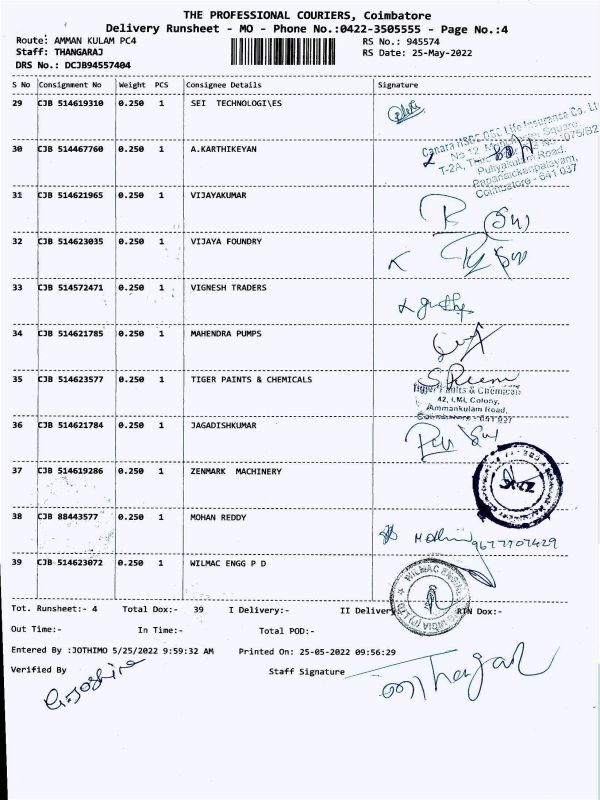 THE PROFESSIONAL COURIERS, Coimbatore
Delivery Runsheet - MO - Phone No.:0422-3505555 - Page No.:4
Route: AMMAN KULAM PC4 RS No.: 945574
Staff: THANGARAJ RS Date: 25-May-2022
DRS No.: DCJB94557404
S No Consignment No Weight PCS Consignee Details Signature
29 CJB 514619310 0.250 1 SEI TECHNOLOGI\ES
Canara HSBC OBC Life Insurance Co. Lt
30 CJB 514467760 1 0.250 A.KARTHIKEYAN
Puliyakulam Road,
Papanaickenpalayam,
Coimbatore - 641 037
31 CJB 514621965 0.250 1 VIJAYAKUMAR
32 CJB 514623035 0.250 1 VIJAYA FOUNDRY
33 CJB 514572471 0.250 1 VIGNESH TRADERS
34 CJB 514621785 0.250 1 MAHENDRA PUMPS
35 CJB 514623577 0.250 1 TIGER PAINTS & CHEMICALS
Tiger Paints & Chemicals
42, LML Colony,
Ammankulam Road,
Coimbatore - 641 037
36 CJB 514621784 0.250 1 JAGADISHKUMAR
37 CJB 514619286 0.250 1 ZENMARK MACHINERY
38 CJB 88443577 0.250 1 MOHAN REDDY
9677707429
39 CJB 514623072 0.250 1 WILMAC ENGG P D
WILMAC ENGINEERING INDIA (P) LTD
Tot. Runsheet:- 4 Total Dox:- 39 I Delivery:- II Delivery RTN Dox:-
Out Time:- In Time:- Total POD:-
Entered By :JOTHIMO 5/25/2022 9:59:32 AM Printed On: 25-05-2022 09:56:29
Verified By Staff Signature